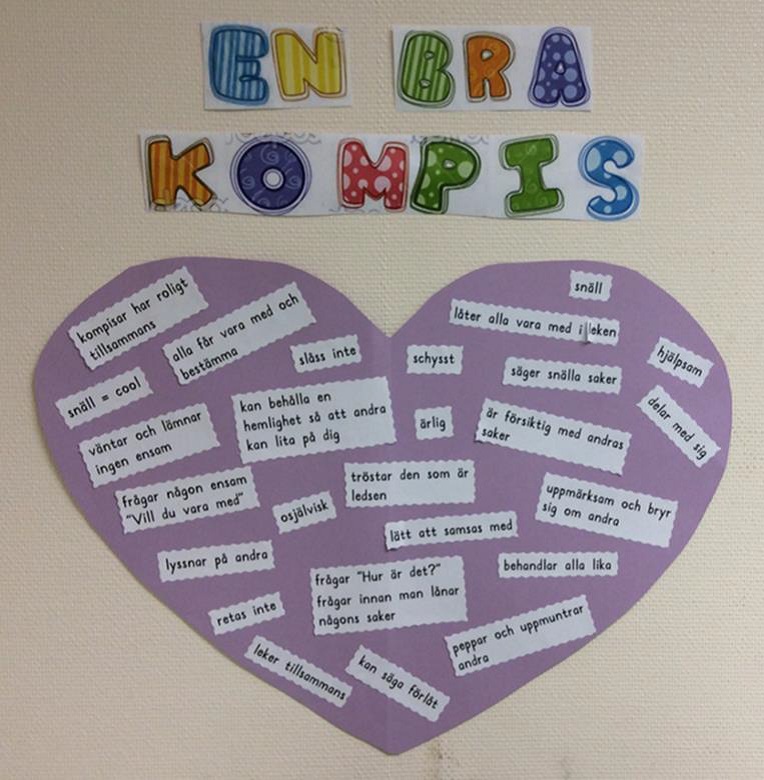 EN BRA
KOMPIS
kompisar har roligt
tillsammans
alla får vara med och
bestämma
slåss inte
snäll = cool
väntar och lämnar
ingen ensam
kan behålla en
hemlighet så att andra
kan lita på dig
frågar någon ensam
"Vill du vara med"
osjälvisk
lyssnar på andra
retas inte
leker tillsammans
snäll
låter alla vara med i leken
schysst
säger snälla saker
hjälpsam
delar med sig
ärlig
är försiktig med andras
saker
tröstar den som är
ledsen
uppmärksam och bryr
sig om andra
lätt att samsas med
behandlar alla lika
frågar "Hur är det?"
frågar innan man lånar
någons saker
peppar och uppmuntrar
andra
kan säga förlåt